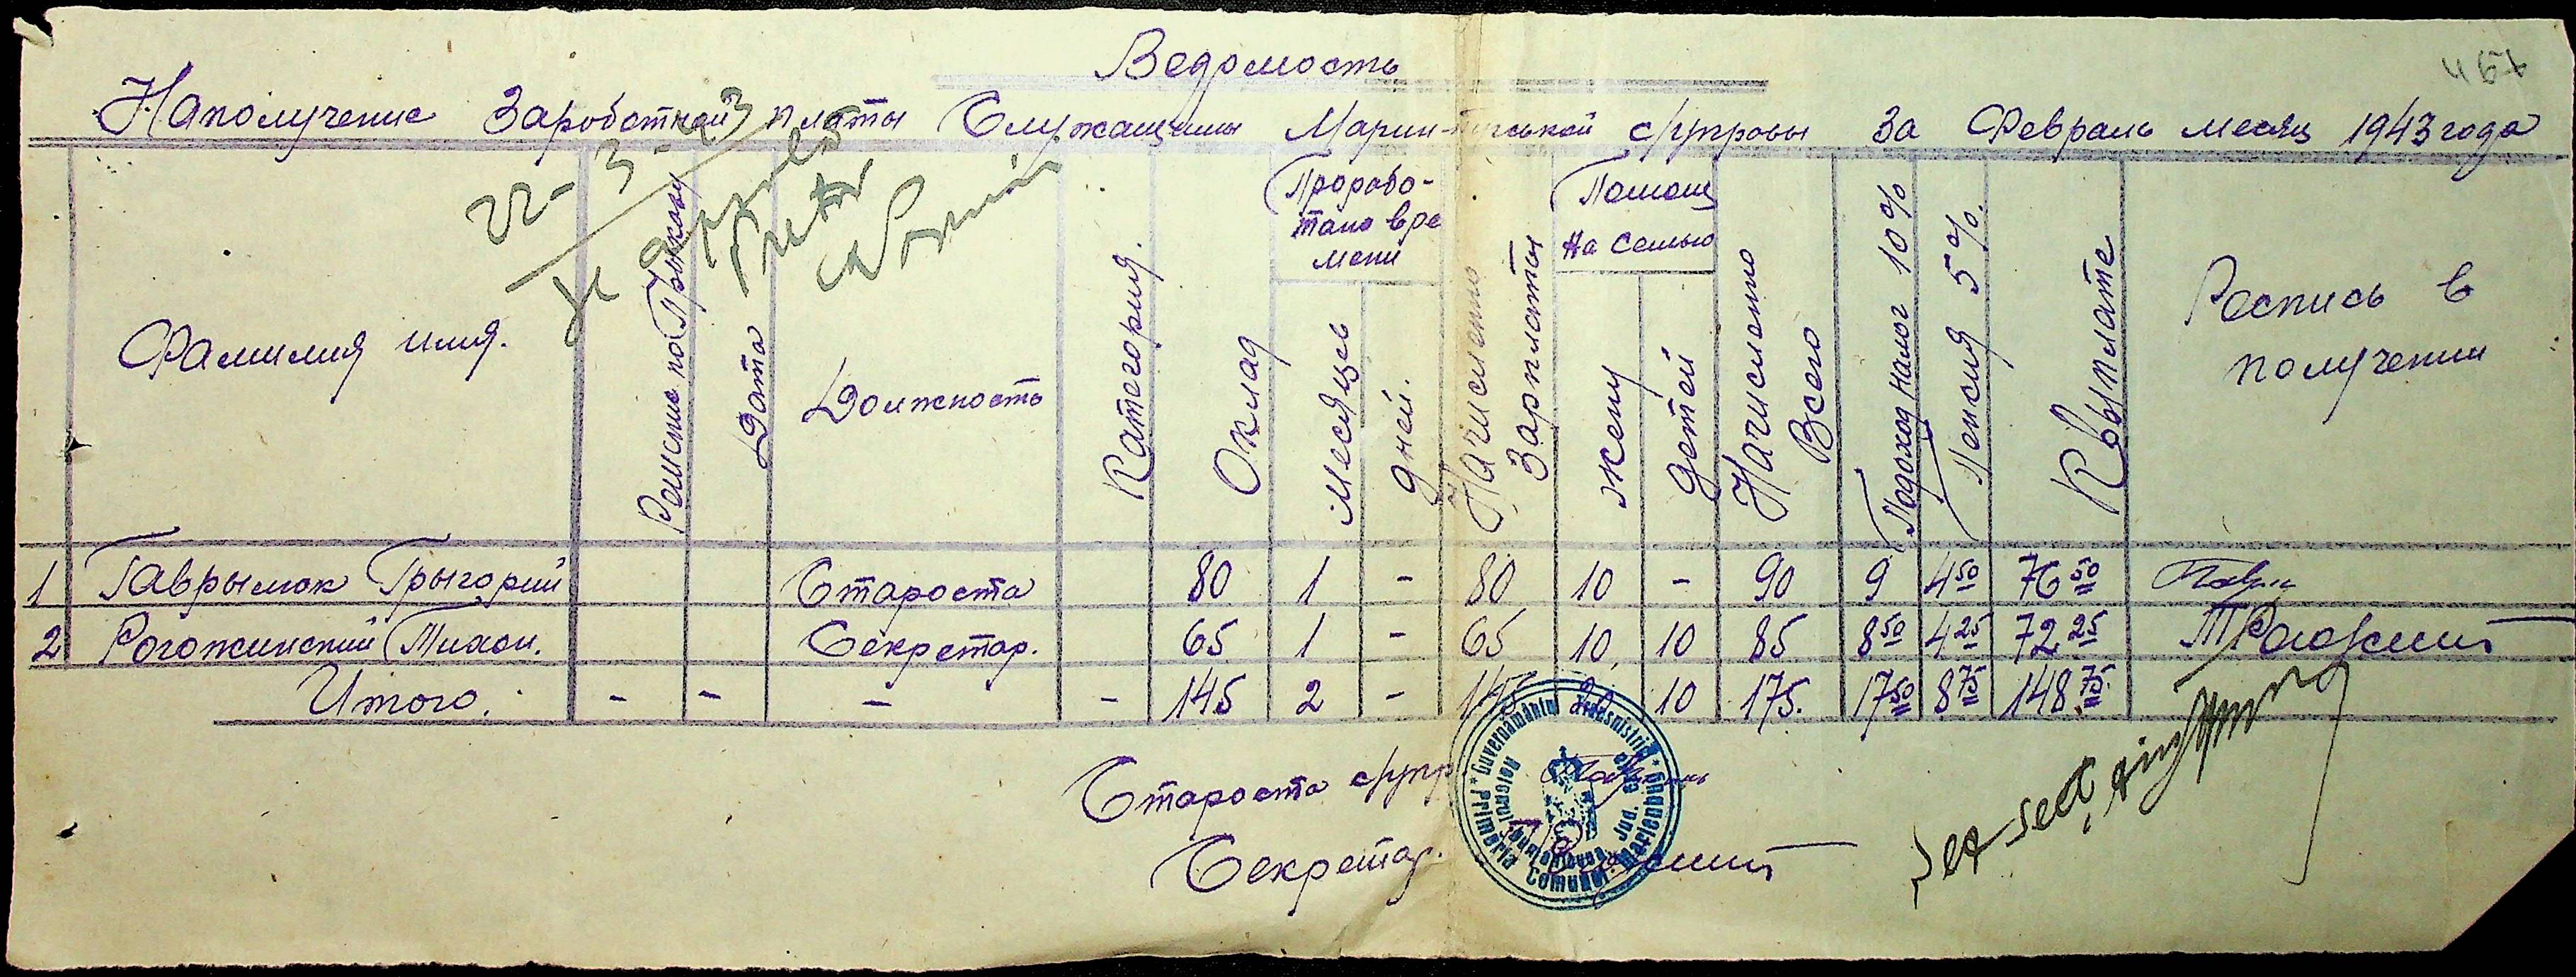 Ведомость
Наполучение Заработной платы Служащими с/упровы За Февраль месяц 1943 года
22-3-43
Фамилия имя.
Росписис по Прыказу
Дата
Должность
Категория.
Оклад
Прорабо-
тано вре
мени
Месяцев
дней.
Начислено
Зарплаты
Помощ
На семью
жену
детей
Начислено
Всего
Подоход налог 10%
Пенсия 5%.
К выплате
Роспись в
получении
1 Гаврылюк Грыгорий Староста 80 1 - 80 10 - 90 9 4 50 76 50
2 Рогожинский Тихон. Секретар. 65 1 - 65 10 10 85 8 50 4 25 72 25
Итого. - - - - 145 2 - 145 20 10 175. 17 50 8 75 148 75
Староста с/упр
Секретар.
Guvernământul Transnistriei
Primăria Comunei